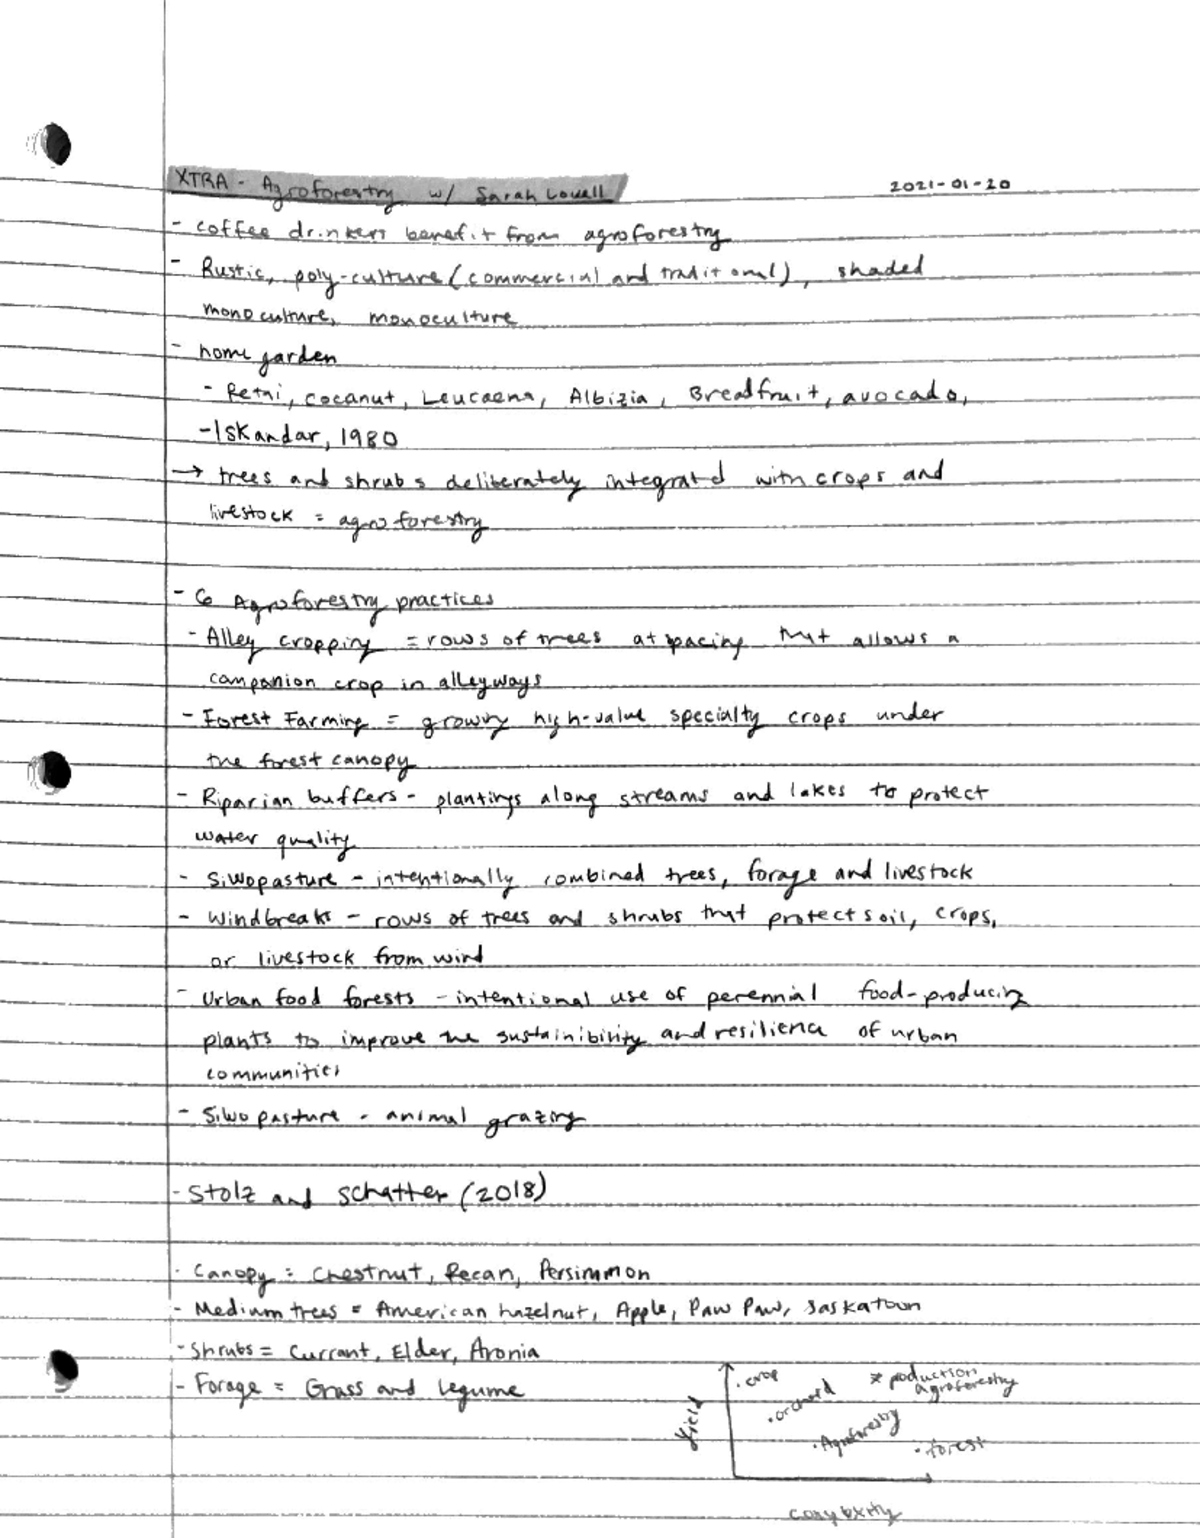 XTRA - Agroforestry w/ Sarah Lovell
2021-01-20
- coffee drinkers benefit from agroforestry
- Rustic, poly-culture (commercial and traditional), shaded
monoculture, monoculture
- home garden
- Petai, cocanut, Leucaena, Albizia, Breadfruit, avocado,
- Iskandar, 1980
→ trees and shrubs deliberately integrated with crops and
livestock = agroforestry
- 6 Agroforestry practices
- Alley cropping = rows of trees at spacing that allows a
companion crop in alleyways
- Forest Farming = growing high-value specialty crops under
the forest canopy
- Riparian buffers - plantings along streams and lakes to protect
water quality
- Silvopasture - intentionally combined trees, forage and livestock
- Windbreaks - rows of trees and shrubs that protect soil, crops,
or livestock from wind
- Urban food forests - intentional use of perennial food-producing
plants to improve the sustainibility and resilience of urban
communities
- Silvopasture - animal grazing
- Stolz and Schatter (2018)
- Canopy = Chestnut, Pecan, Persimmon
- Medium trees = American hazelnut, Apple, Paw Paw, Saskatoon
- Shrubs = Currant, Elder, Aronia
- Forage = Grass and legume
Yield
· crop
· orchard
* production
agroforestry
· Agroforestry
· forest
complexity